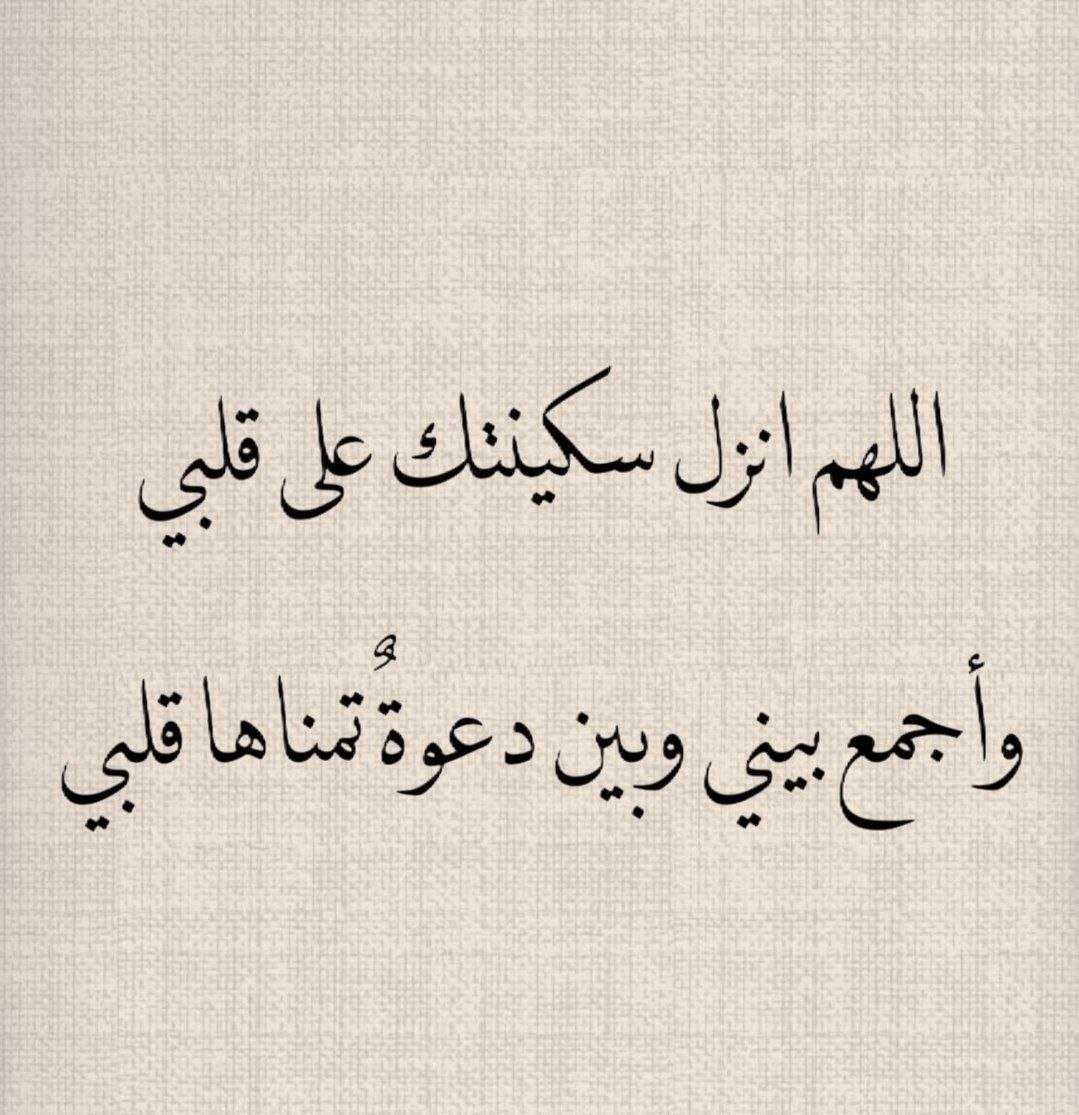 اللهم انزل سكينتك على قلبي
وأجمع بيني وبين دعوةٌ تمناها قلبي